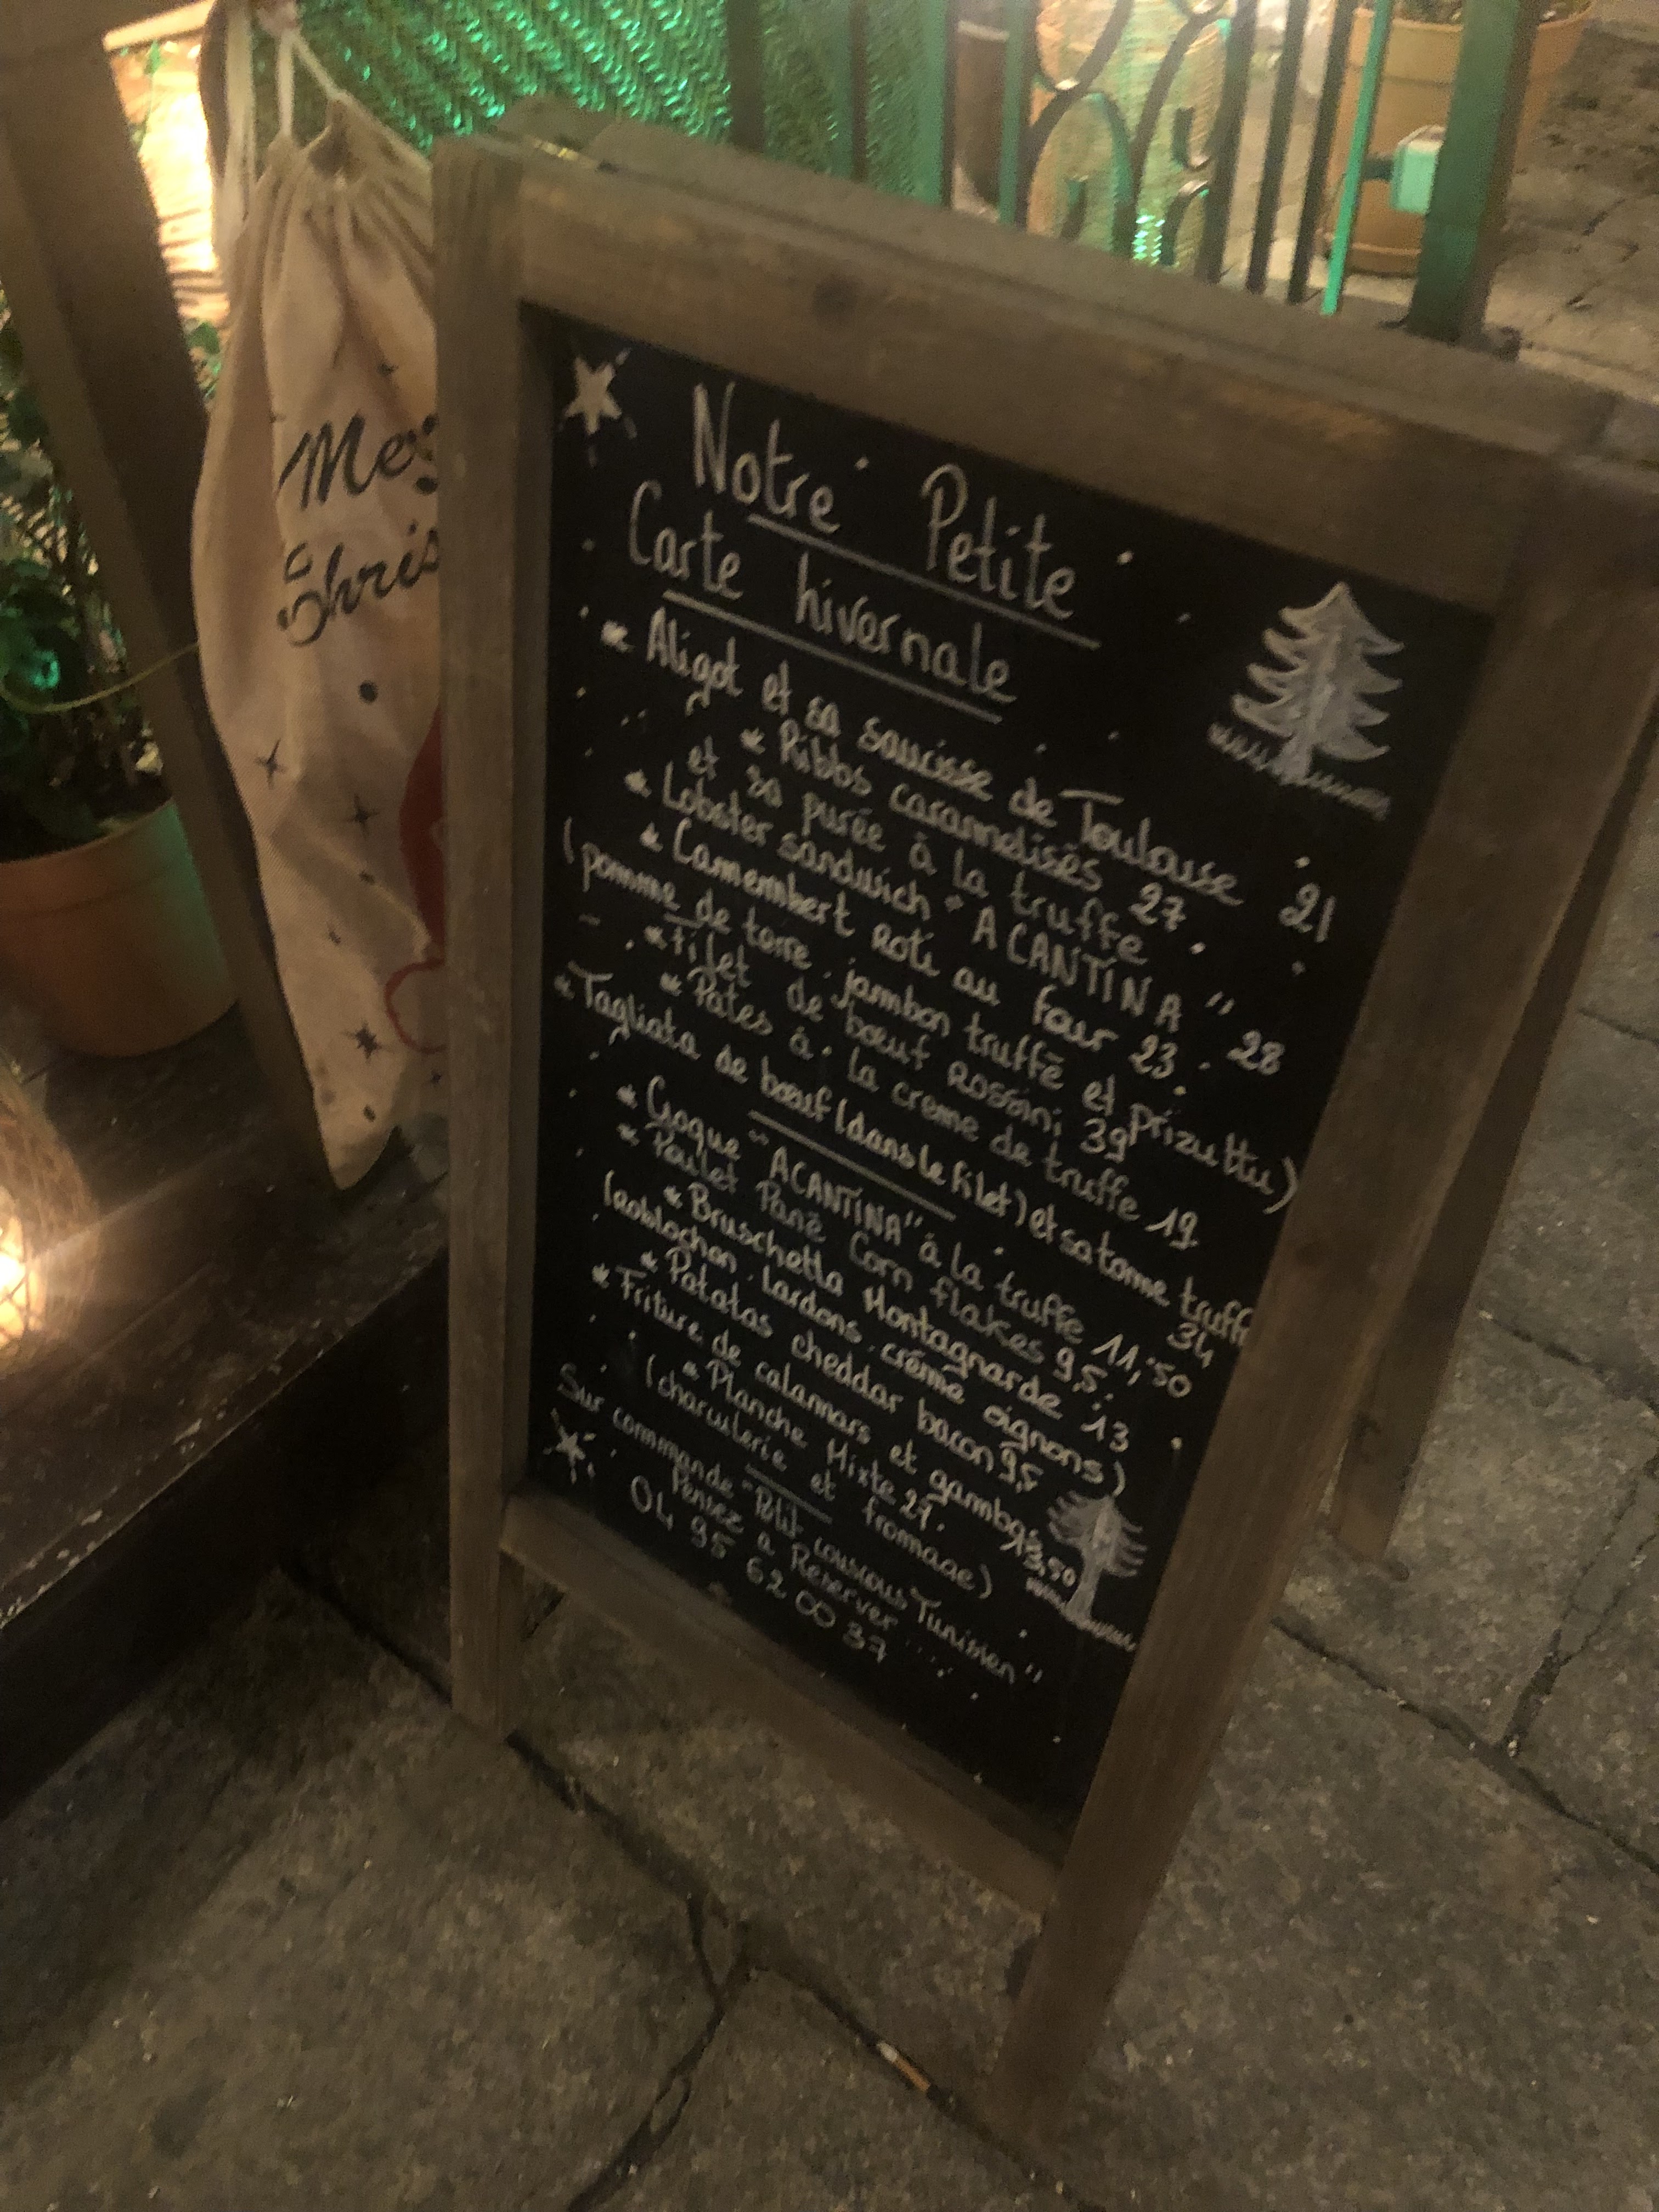 Merry
Chris
Notre Petite
Carte hivernale
* Aligot et sa saucisse de Toulouse 21
* Ribbs caramelisés 27
et sa purée à la truffe
* Lobster sandwich "A CANTINA" 28
* Camembert roti au four 23
(pomme de terre. jambon truffé et prizuttu)
* Filet de bœuf Rossini 39
* Pates à la creme de truffe 19
* Tagliata de bœuf (dans le filet) et sa tome truff
34
* Croque "ACANTINA" à la truffe 11,50
* Poulet Pané Corn flakes 9,5
* Bruschetta Montagnarde 13
(roblochon. lardons. crème oignons)
* Patatas cheddar bacon 9,5
* Friture de calamars et gambas 13,50
* Planche Mixte 27
(charcuterie et fromage)
Sur commande "Petit couscous Tunisien"
Pensez a Reserver ...
04 95 62 00 37